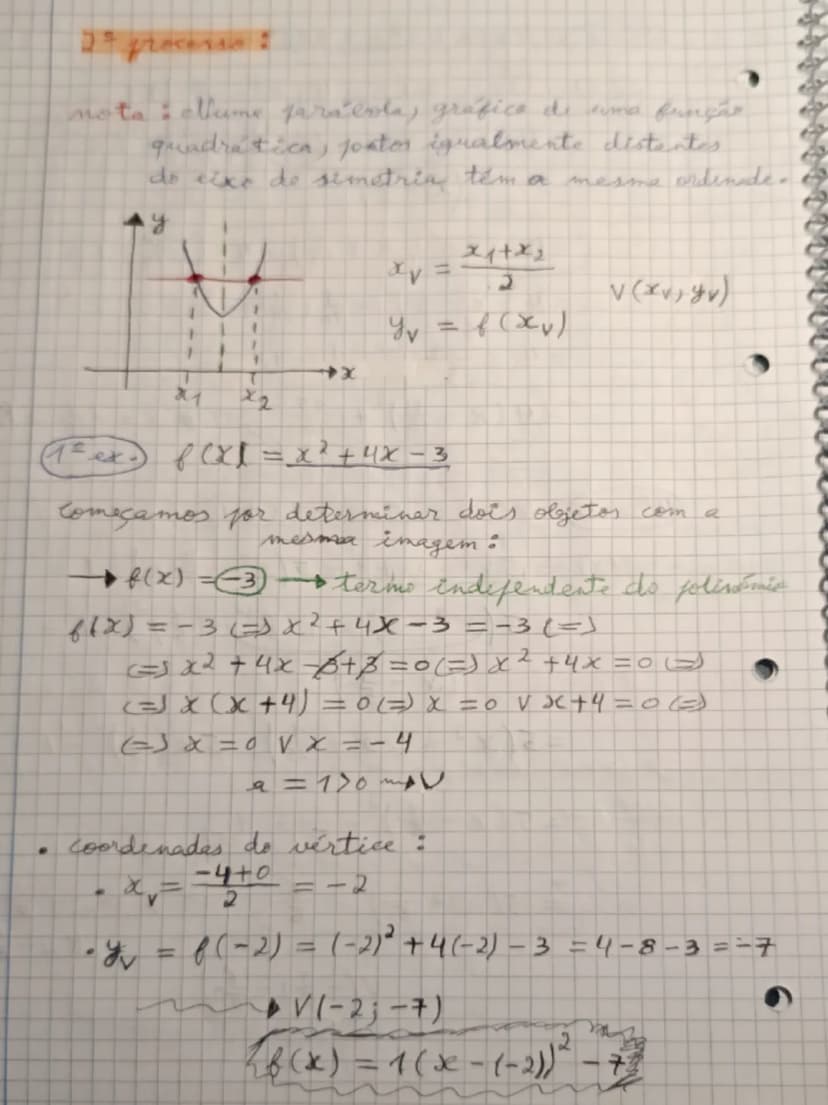 2º processo:
nota: Numa parábola, gráfico de uma função
quadrática, pontos igualmente distantes
do eixo de simetria, têm a mesma ordenada.
y
x
x₁
x₂
x_v = (x₁+x₂)/2
y_v = f(x_v)
V(x_v, y_v)
1º ex. f(x) = x² + 4x - 3
começamos por determinar dois objetos com a
mesma imagem:
→ f(x) = -3 → termo independente do polinómio
f(x) = -3 (=) x² + 4x - 3 = -3 (=)
(=) x² + 4x - 3 + 3 = 0 (=) x² + 4x = 0 (=)
(=) x (x + 4) = 0 (=) x = 0 ∨ x + 4 = 0 (=)
(=) x = 0 ∨ x = -4
a = 1 > 0 → ∪
• coordenadas do vértice:
• x_v = (-4+0)/2 = -2
• y_v = f(-2) = (-2)² + 4(-2) - 3 = 4 - 8 - 3 = -7
→ V(-2; -7)
f(x) = 1(x - (-2))² - 7